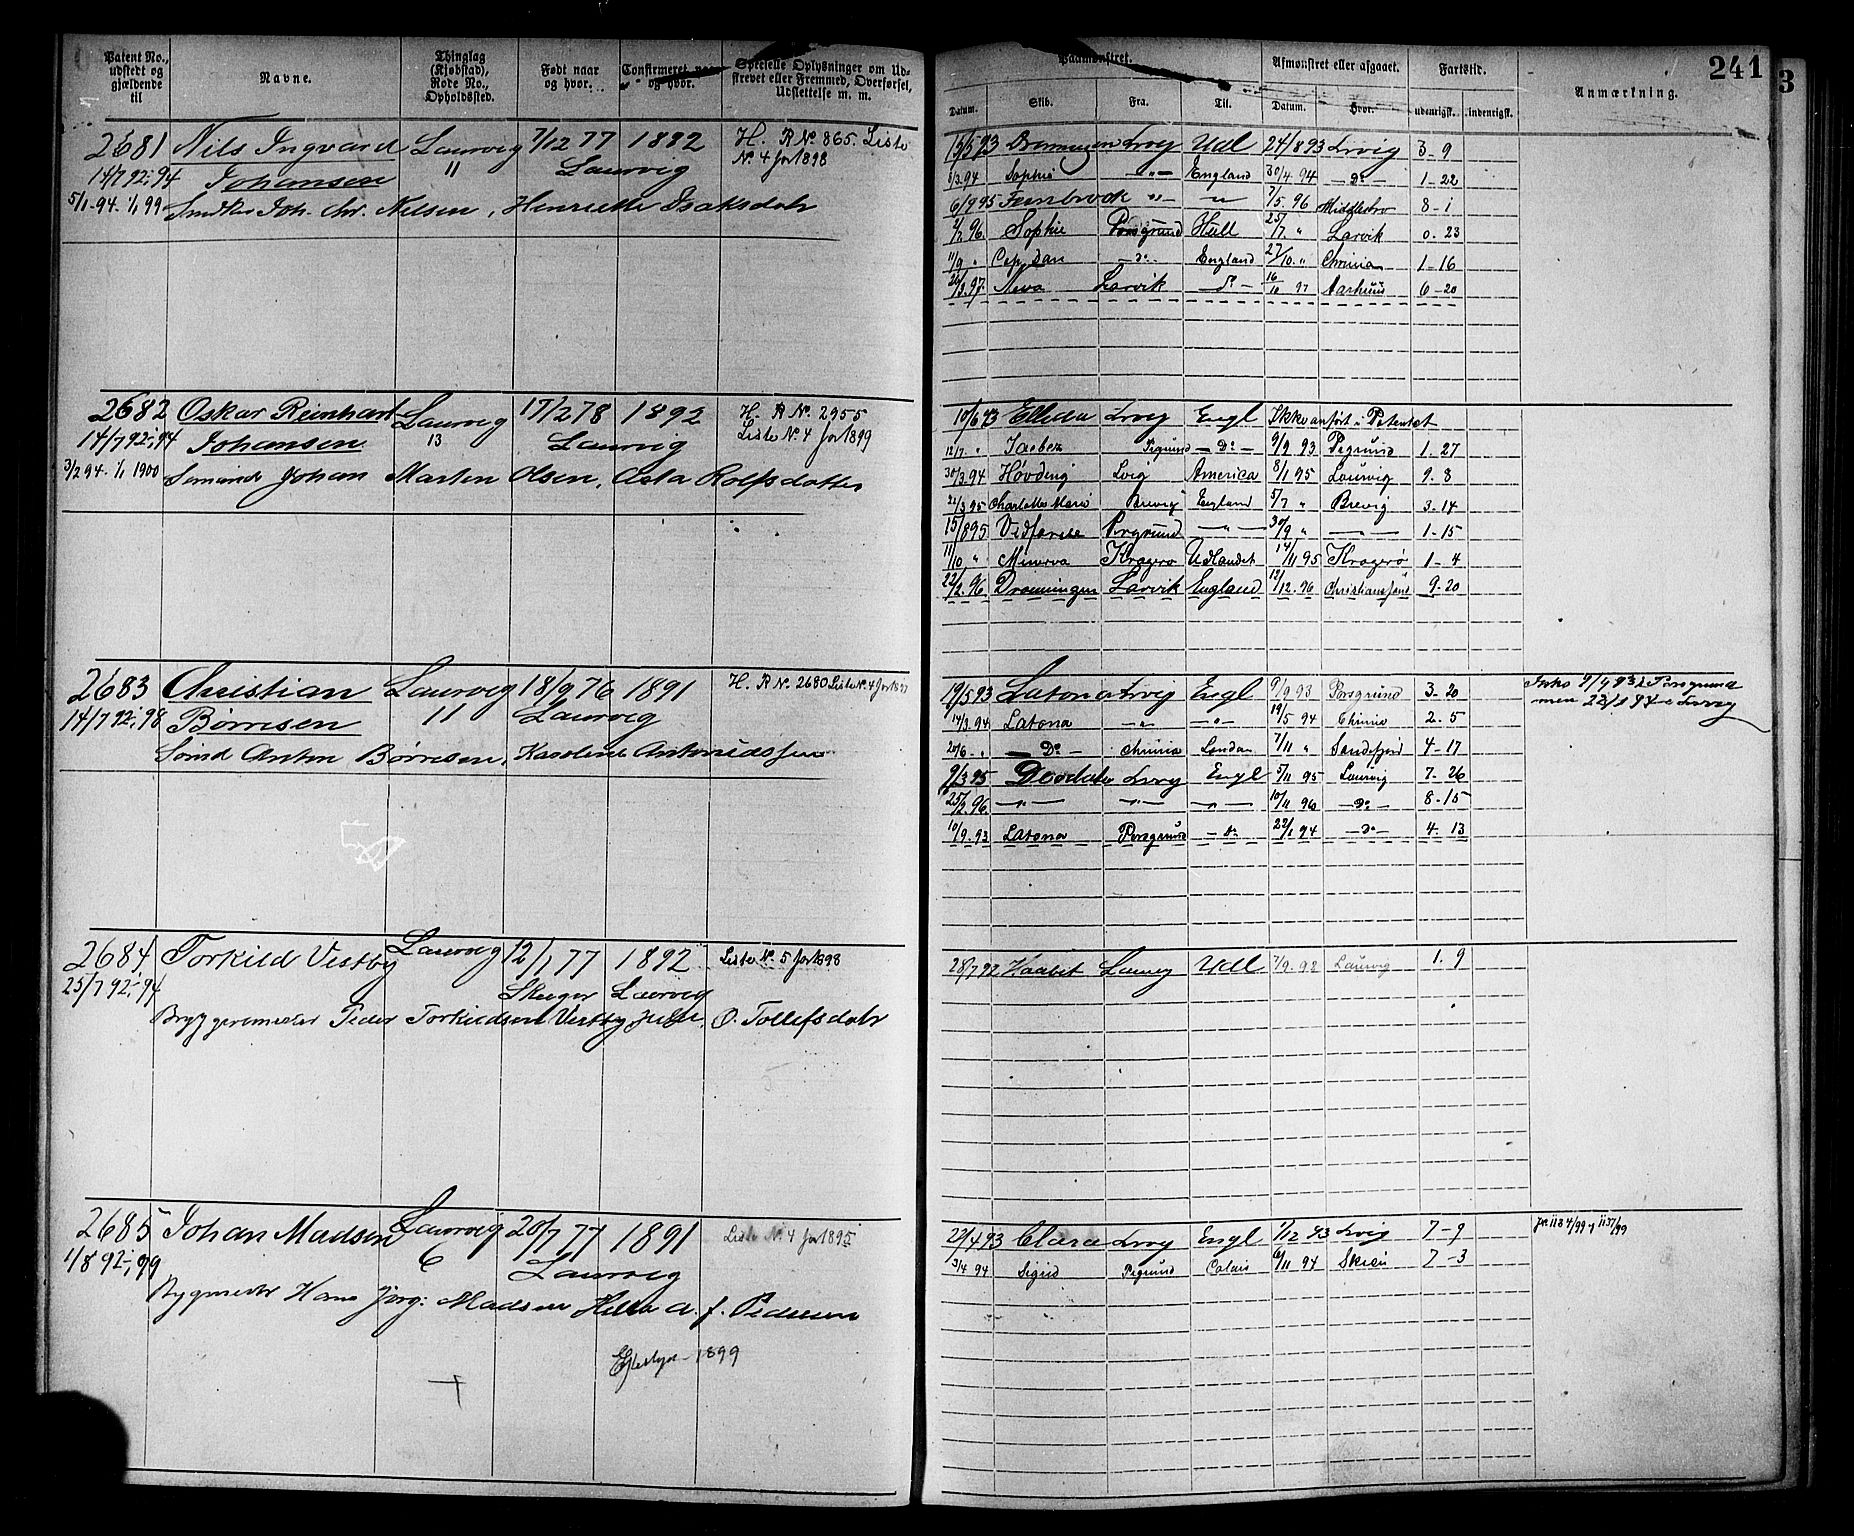 241
3
Patent No., udstedt og gjældende til
Navne.
Thinglag (Kjøbstad), Rode No., Opholdssted.
Født naar og hvor.
Confirmeret naar og hvor.
Specielle Oplysninger om Udskrevet eller Fremmed, Overførsel, Udslettelse m. m.
Paamønstret.
Afmønstret eller afgaaet.
Fartstid.
Anmærkning.
Datum. Skib. Fra. Til. Datum. Hvor. udenrigsk. indenrigsk.
2681 Nils Ingvard Laurvig 7/12 77 1892 H. R No. 865. Liste
14/7 92 ; 94 Johansen 11 Laurvig No. 4 for 1898
5/1 - 94 - 1/1 99 Joh. Chr. Nilsen, Henriette Isaksdatr
15/5 93 Dronningen Lvig Udl 24/8 93 Lvig 3 - 9
94 Sophie - " - England 30/4 94 - Do - 1 - 22
6/9 95 Fernbrook " - - " - 7/5. 96 Middlesbro 8 - 1
96. Sophie Porsgrund Hull 25/7. " Larvik 0 - 23
11/9 " Cap. Dan - Do - England 27/10. " Chrinia 1 - 16
97. Neva Larvik - Do - 16/10 97 Aarhuus 6 - 20
2682 Oskar Reinhart Laurvig 17/2 78 1892 H. R No. 2955
14/7 92 ; 94 Johansen 13 Laurvig Liste No. 4 for 1899
3/2 94 - 1/1 1900 Sømand Johan Marten Olsen, Asta Rolfsdatter
10/6 93 Ellida Lvig Engl Ikke anført i Patentet
12/7. " Psgrund - Do - 9/9 93 Psgrund 1 - 27
30/3 94 Høvding Lvig America 8/1 95 Laurvig 9. 8
22/3 95 Charlotte Marie Brevig England 5/7 " Brevig 3 - 14
15/8 95 Porsgrund - " - 30/9 " - " - 1 - 15
11/10 " Minerva Kragerø Udlandet 14/11 95 Kragerø 1 - 4
22/2. 96 Dronningen Larvik England 12/12. 96 Christianssand 9 - 20
2683 Christian Laurvig 18/9 76 1891 H. R No. 2680 Liste No. 4 for 1897
14/7 92 ; 98 Børresen 11 Laurvig
Sømd Anton Børresen, Karoline
19/5 93 Latona Lvig Engl 9/9 93 Porsgrund 3 - 20
14/3. 94 Latona - " - - " - 19/5 94 Chrinia 2 - 5
20/6 - " - Do - Chrinia London 7/11 " Sandefjord 4 - 17
9/3 95 Deodata Lvig Engl 5/11 95 Laurvig 7 - 26
25/2. 96. - " - - " - - " - 10/11 96 - Do - 8 - 15
10/9. 93 Latona Porsgrund - Do 22/1 94 - Do - 4 - 13
Ikke 9/9 93 i Porsgrund
men 22/1 94 i Lvig
2684 Torkild Vestby Laurvig 12/1 77 1892 Liste No. 5 for 1898
25/7 92 ; 94 Skeiger Laurvig
Bryggeremester Peder Torkildsen Vestby Helle O. Tollefsdatr
28/7 92 Haabet Laurvig Udl 7/9. 92 Laurvig 1. 9
2685 Johan Madsen Laurvig 20/7 77 1891 Liste No. 4 for 1895
1/8 92 ; 99 6 Laurvig
Bygmester Hans Jørg: Madsen Helle A. f. Pedersen
1899
22/4 93 Clara Lvig Engl 1/12 93 Lvig 7 - 9
3/4 94 Sigrid Psgrund Calais 6/11 94 Skien 7 - 3